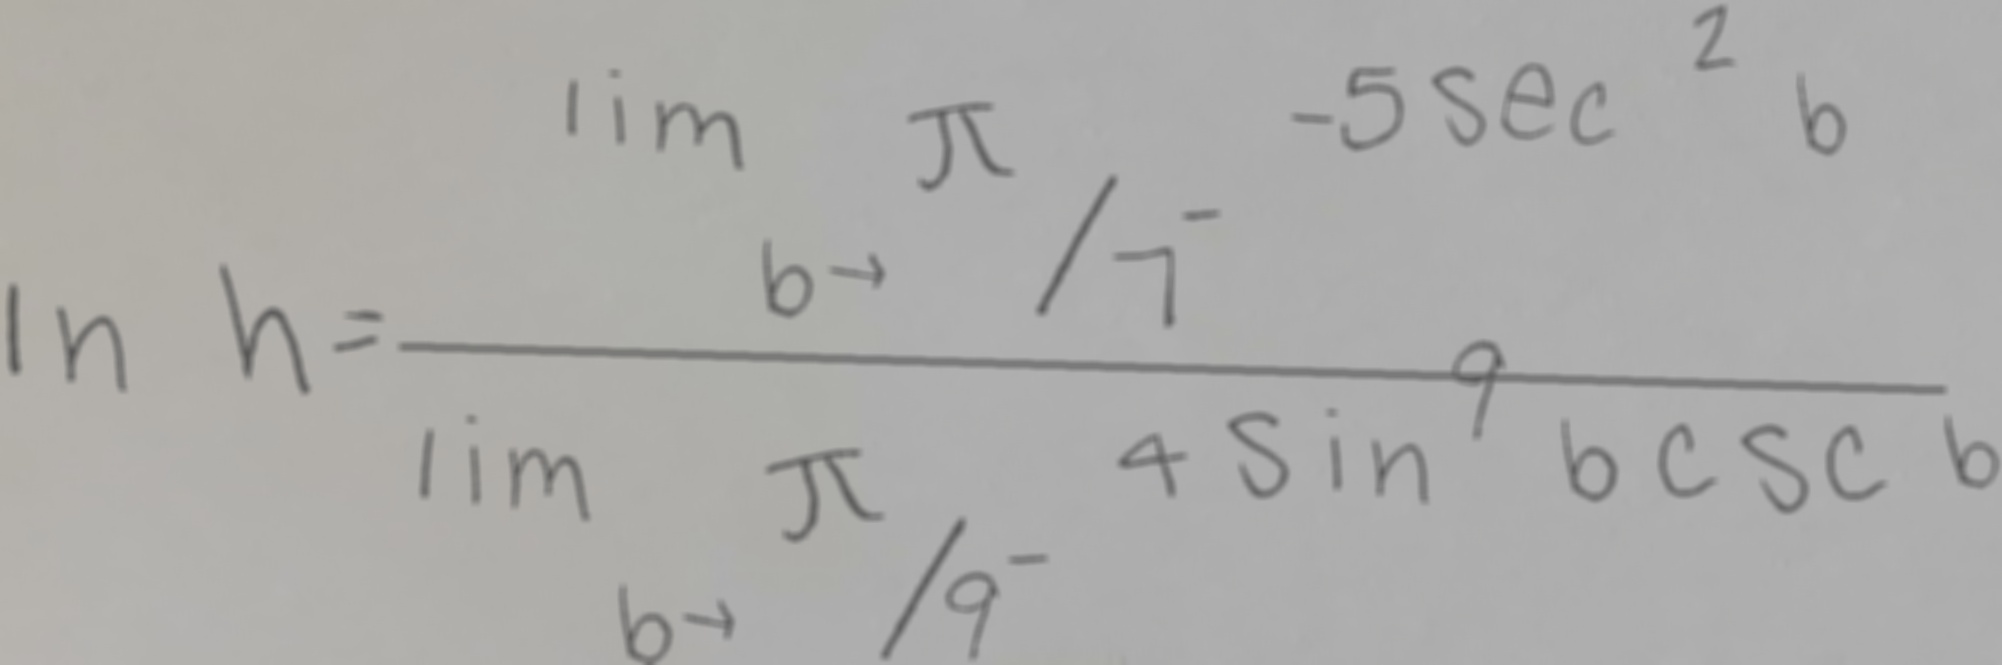 ln h = \frac{\lim_{b \to \pi/7^-} -5 \sec^2 b}{\lim_{b \to \pi/9^-} 4 \sin^9 b \csc b}